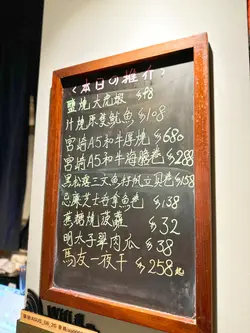 <本日の推介>
鹽燒大虎蝦 $98
汁燒原隻魷魚 $108
宮崎A5和牛厚燒 $680
宮崎A5和牛海膽卷 $288
黑松露三文魚籽帆立貝卷 $158
忌廉芝士吞拿魚卷 $138
蕉糖燒菠蘿 $32
明太子翠肉瓜 $38
馬友一夜干 $258起